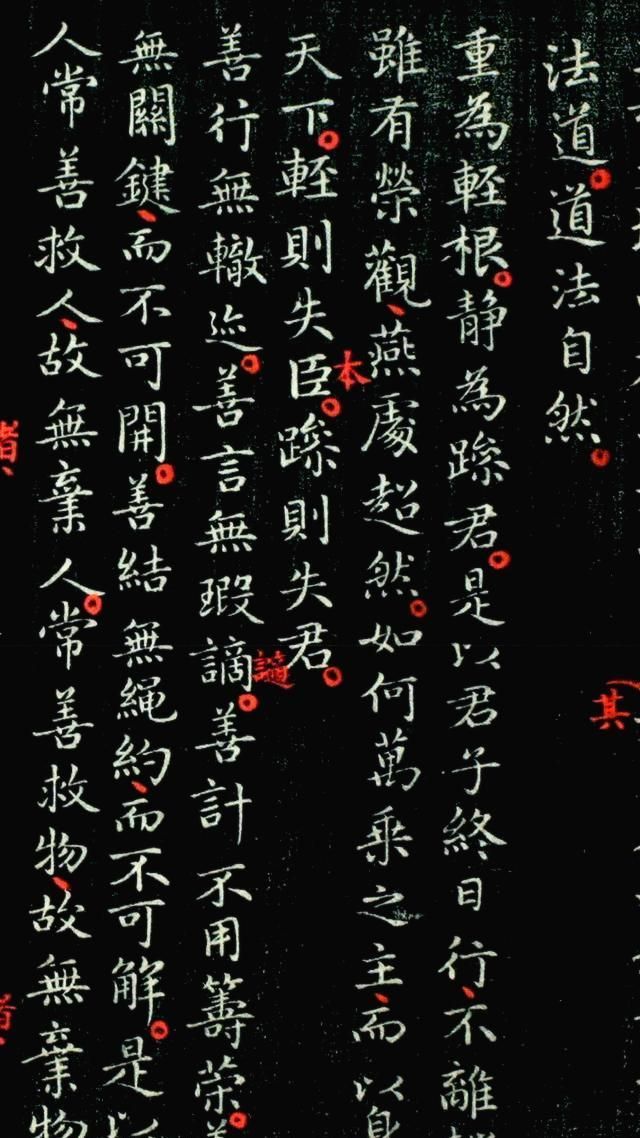 法道。道法自然。
重為輊根。静為躁君。是以君子終日行、不離
雖有榮觀、燕處超然。如何萬乘之主、而以身
天下。輊則失臣。躁則失君。
本
善行無轍迹。善言無瑕讁。善計不用籌策。善
謫
無關鍵、而不可開。善結無繩約、而不可解。是以
人常善救人、故無棄人。常善救物、故無棄物
其